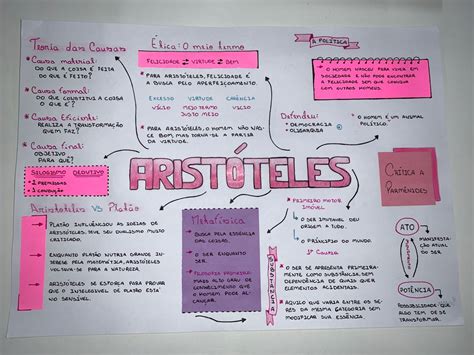 Teoria das Causas
* Causa material:
DO QUE A COISA É FEITA
DO QUE É FEITO?
* Causa formal:
O QUE CONSTITUI A COISA
O QUE É?
* Causa Eficiente:
REALIZA A TRANSFORMAÇÃO
QUEM FAZ?
* Causa final:
OBJETIVO
PARA QUE?
SILOGISMO DEDUTIVO
- 2 PREMISSAS
- 1 CONCLUSÃO
Ética: O meio termo
FELICIDADE = VIRTUDE = BEM
* PARA ARISTÓTELES, FELICIDADE É
A BUSCA PELO APERFEIÇOAMENTO.
EXCESSO VIRTUDE CARÊNCIA
VÍCIO MEIO TERMO VÍCIO
JUSTO MEIO
* PARA ARISTÓTELES, O HOMEM NÃO NAS-
CE BOM, MAS TORNA-SE A PARTIR
DA VIRTUDE.
A POLÍTICA
* O HOMEM NASCEU PARA VIVER EM
SOCIEDADE E NÃO PODE ENCONTRAR
A FELICIDADE SEM QUE CONVIVA
COM OUTROS HOMENS.
Defendeu:
* DEMOCRACIA
* OLIGARQUIA
* O HOMEM É UM ANIMAL
POLÍTICO.
ARISTÓTELES
Aristóteles vs Platão
* PLATÃO INFLUENCIOU AS IDEIAS DE
ARISTÓTELES, TEVE SEU DUALISMO MUITO
CRITICADO.
* ENQUANTO PLATÃO NUTRIA GRANDE INTE-
RESSE PELA MATEMÁTICA, ARISTÓTELES
VOLTAVA-SE PARA A NATUREZA.
* ARISTÓTELES SE ESFORÇA PARA PROVAR
QUE O INTELIGÍVEL DE PLATÃO ESTÁ
NO SENSÍVEL.
Metafísica
* BUSCA PELA ESSÊNCIA
DAS COISAS.
* O SER ENQUANTO
SER.
* FILOSOFIA PRIMEIRA:
MAIS ALTO GRAU DE
CONHECIMENTO QUE
O HOMEM PODE AL-
CANÇAR.
* PRIMEIRO MOTOR
IMÓVEL
* O SER IMUTÁVEL DEU
ORIGEM A TUDO.
* O PRINCÍPIO DO MUNDO.
1ª Causa
SUBSTÂNCIA
* O SER SE APRESENTA PRIMEIRA-
MENTE COMO SUBSTÂNCIA, SEM
DEPENDÊNCIA DE QUALQUER
ELEMENTOS ACIDENTAIS.
* AQUILO QUE VARIA ENTRE OS SE-
RES DA MESMA CATEGORIA SEM
MODIFICAR SUA ESSÊNCIA.
CRÍTICA A
PARMÊNIDES
ATO
MANIFESTAÇÃO
ATUAL DO
SER.
POTÊNCIA
POSSIBILIDADE QUE
ALGO TEM DE SE
TRANSFORMAR.